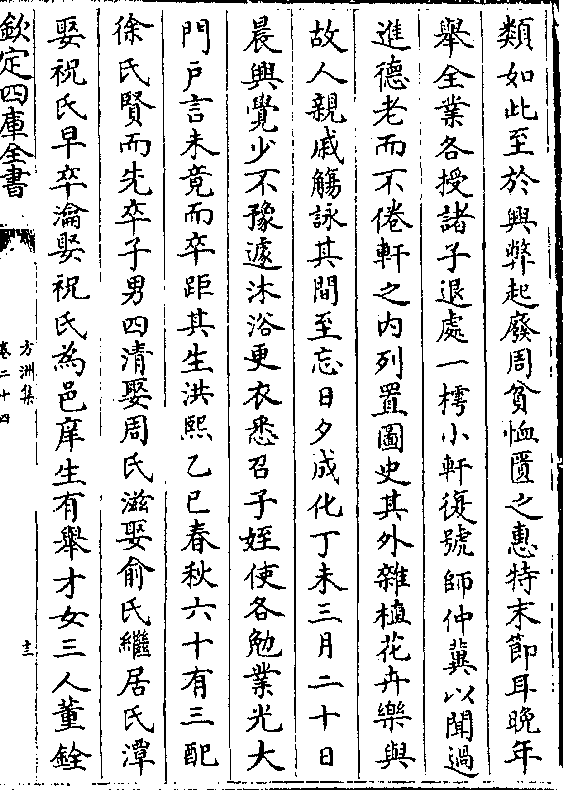 類如此至於興弊起廢周貧恤匱之惠特末節耳晚年
舉全業各授諸子退處一樗小軒復號師仲冀以聞過
進德老而不倦軒之内列置圖史其外雜植花卉樂與
故人親戚觴詠其間至忘日夕成化丁未三月二十日
晨興覺少不豫遽沐浴更衣悉召子姪使各勉業光大
門戶言未竟而卒距其生洪熙乙巳春秋六十有三配
徐氏賢而先卒子男四清娶周氏滋娶俞氏繼居氏潭
娶祝氏早卒瀹娶祝氏為邑庠生有舉才女三人董銓
欽定四庫全書
方洲集
卷二十四